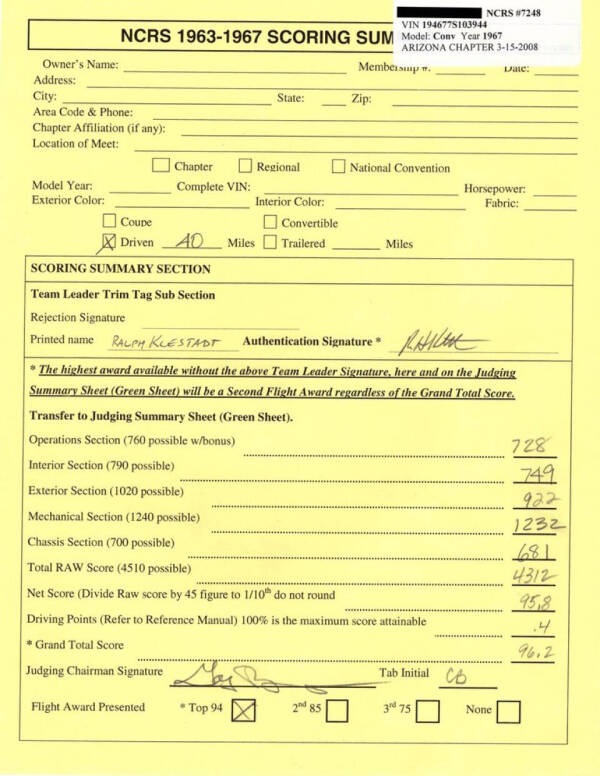 NCRS #7248
VIN 194677S103944
Model: Conv Year 1967
ARIZONA CHAPTER 3-15-2008
NCRS 1963-1967 SCORING SUM
Owner's Name: Membership #: Date:
Address:
City: State: Zip:
Area Code & Phone:
Chapter Affiliation (if any):
Location of Meet:
Chapter Regional National Convention
Model Year: Complete VIN: Horsepower:
Exterior Color: Interior Color: Fabric:
Coupe Convertible
Driven 40 Miles Trailered Miles
SCORING SUMMARY SECTION
Team Leader Trim Tag Sub Section
Rejection Signature
Printed name RALPH KLESTADT Authentication Signature *
* The highest award available without the above Team Leader Signature, here and on the Judging
Summary Sheet (Green Sheet) will be a Second Flight Award regardless of the Grand Total Score.
Transfer to Judging Summary Sheet (Green Sheet).
Operations Section (760 possible w/bonus) 728
Interior Section (790 possible) 749
Exterior Section (1020 possible) 922
Mechanical Section (1240 possible) 1232
Chassis Section (700 possible) 681
Total RAW Score (4510 possible) 4312
Net Score (Divide Raw score by 45 figure to 1/10th do not round 95.8
Driving Points (Refer to Reference Manual) 100% is the maximum score attainable .4
* Grand Total Score 96.2
Judging Chairman Signature Tab Initial CB
Flight Award Presented * Top 94 2nd 85 3rd 75 None